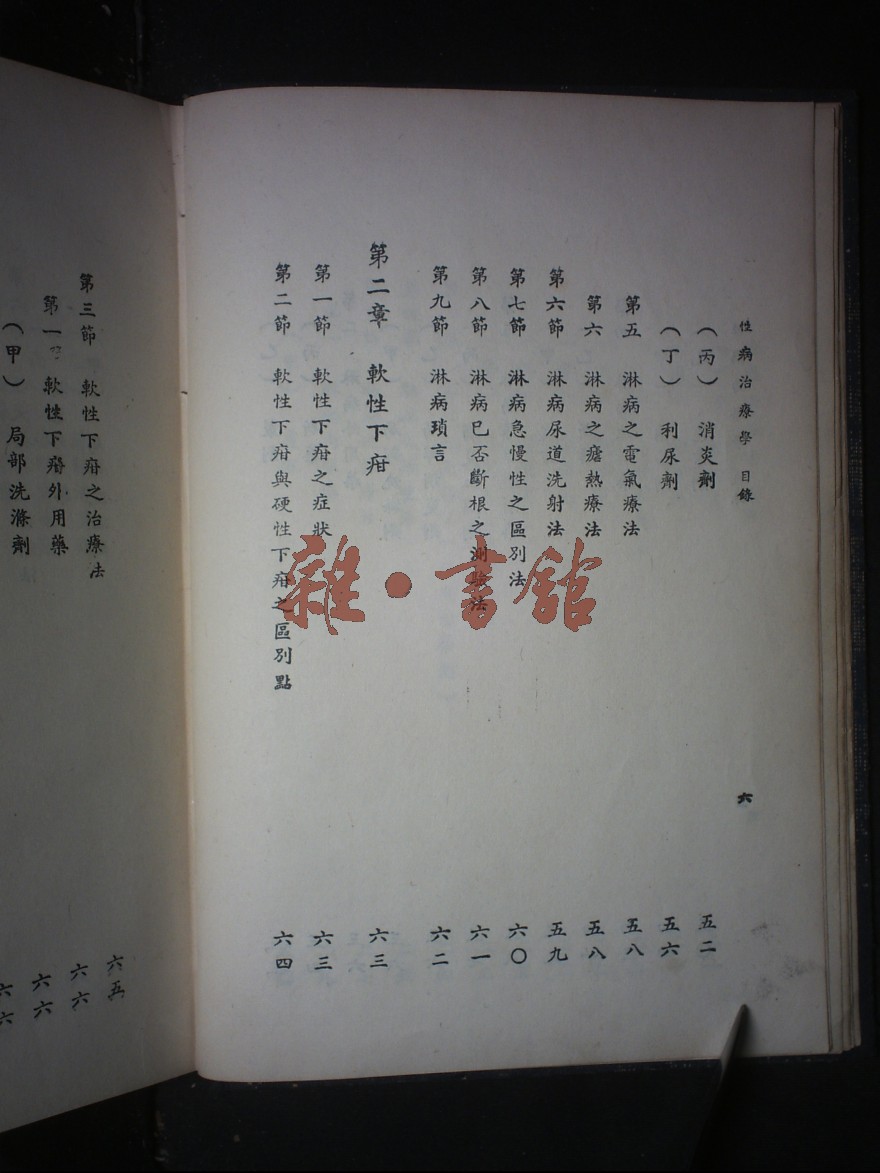 性病治療學 目錄
六
(丙) 消炎劑 五二
(丁) 利尿劑 五六
第五 淋病之電氣療法 五八
第六 淋病之瘧熱療法 五八
第六節 淋病尿道洗射法 五九
第七節 淋病急慢性之區別法 六〇
第八節 淋病已否斷根之測驗法 六一
第九節 淋病瑣言 六二
第二章 軟性下疳 六三
第一節 軟性下疳之症狀 六三
第二節 軟性下疳與硬性下疳之區別點 六四
第三節 軟性下疳之治療法
第一 軟性下疳外用藥
(甲) 局部洗滌劑
六五
六六
六六
六六
雜·書館